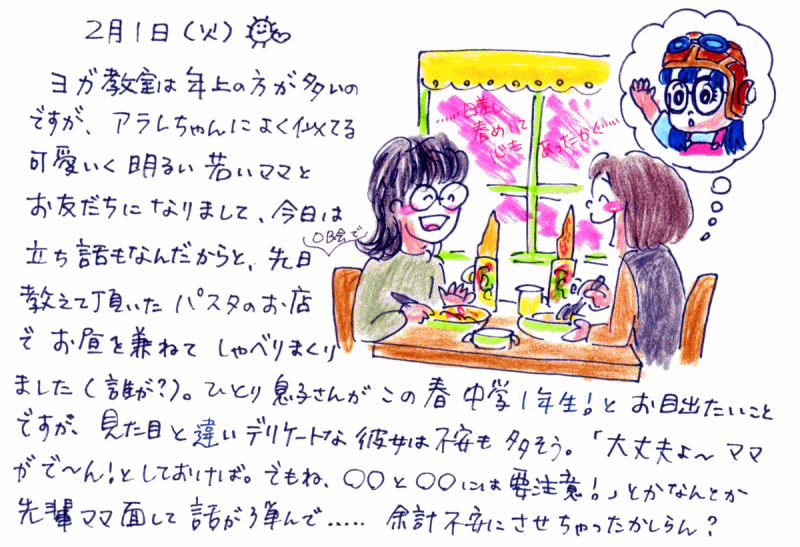 2月1日(火)
ヨガ教室は年上の方が多いの
ですが、アラレちゃんによく似てる
可愛いく明るい若いママと
お友だちになりまして、今日は
立ち話もなんだからと、先日
OB会で
教えて頂いたパスタのお店
でお昼を兼ねてしゃべりまくり
ました(誰が?)。ひとり息子さんがこの春中学1年生!とお目出たいこと
ですが、見た目と違いデリケートな彼女は不安も多そう。「大丈夫よ〜ママ
がで〜ん!としておけば。でもね、〇〇と〇〇には要注意!」とかなんとか
先輩ママ面して話がう弾んで..... 余計不安にさせちゃったかしらん?
.....日差し
春めいて
心も
あったかく.....